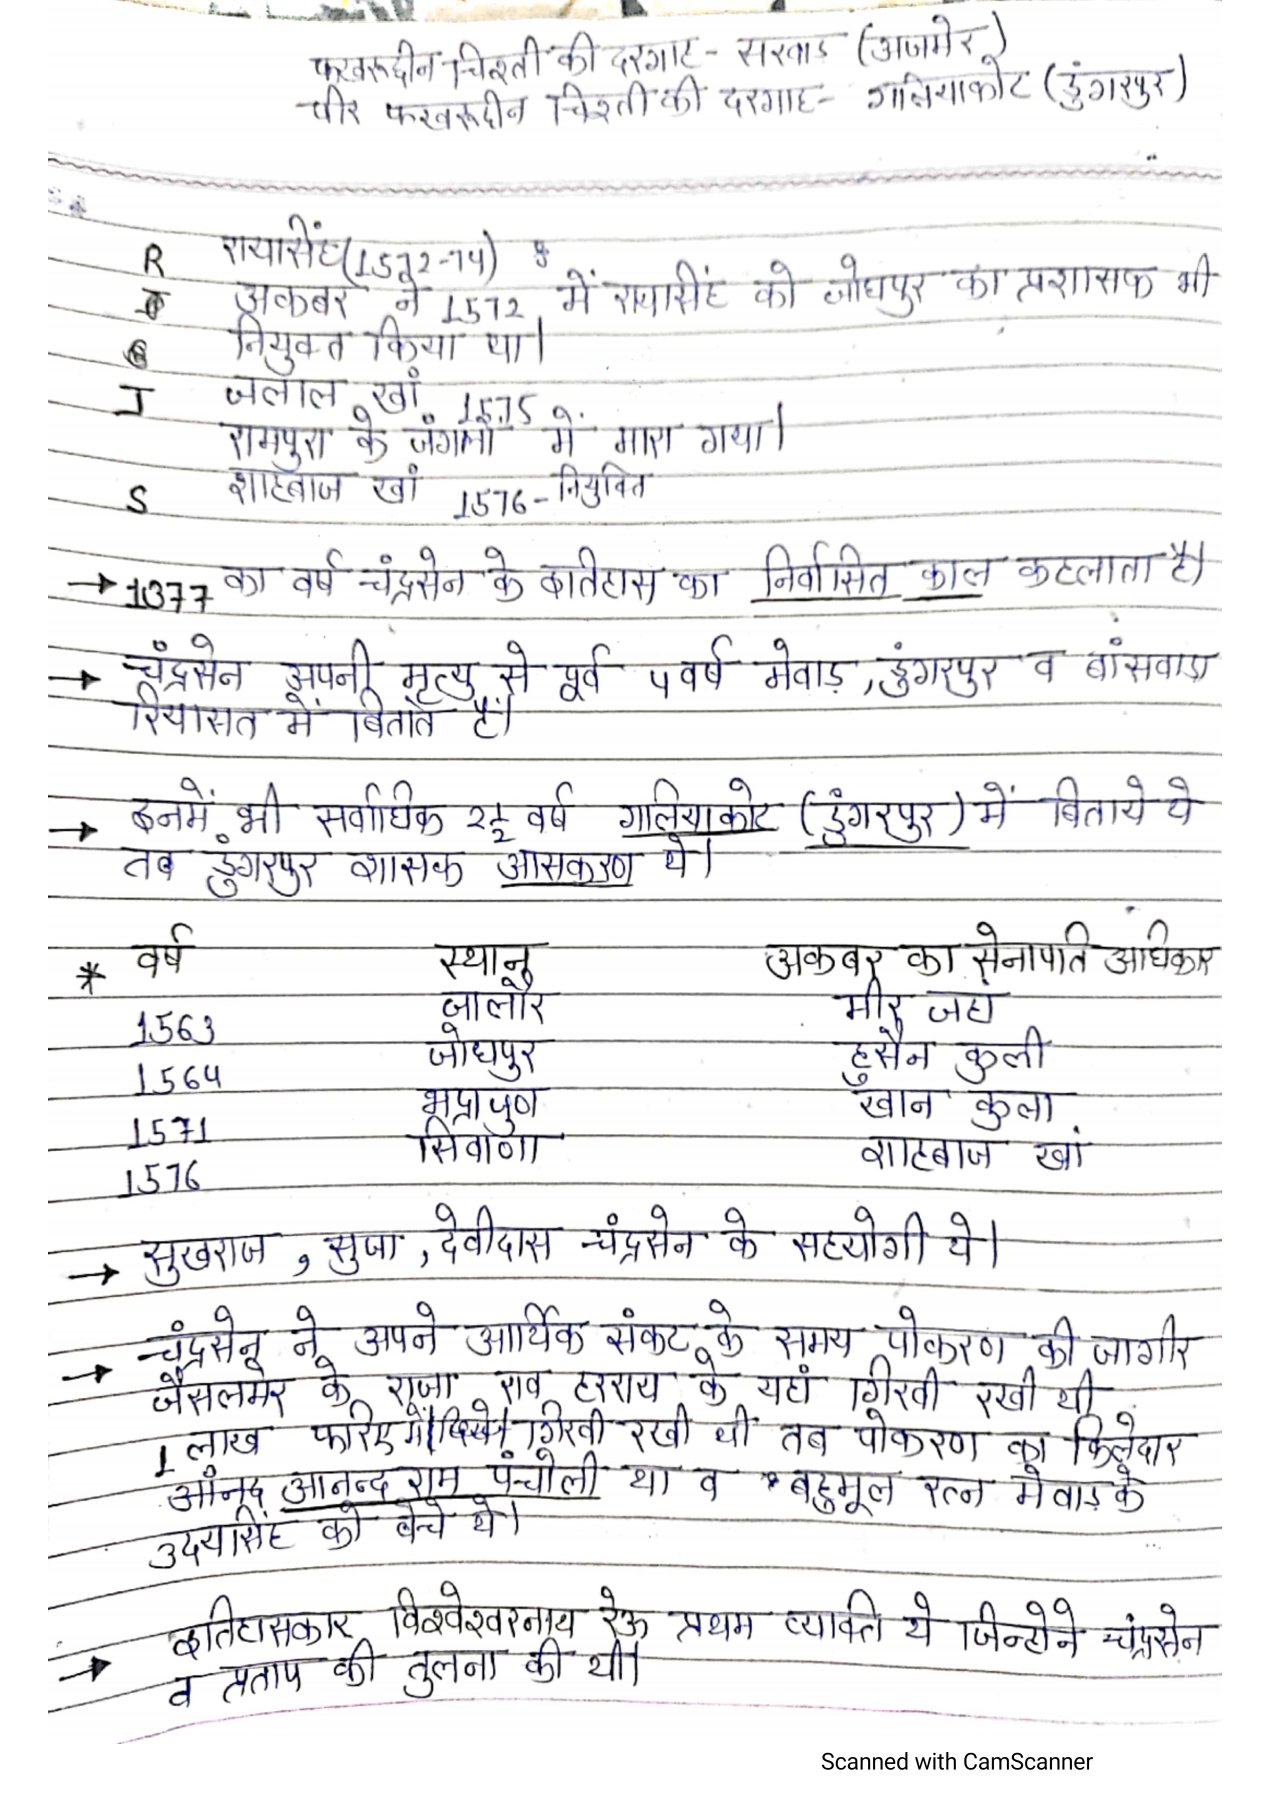 फखरुद्दीन चिश्ती की दरगाह - सरवाड (अजमेर)
पीर फखरुद्दीन चिश्ती की दरगाह - गलियाकोट (डुंगरपुर)
R रायसिंह (1572-74)
अकबर ने 1572 में रायसिंह को जोधपुर का प्रशासक भी
नियुक्त किया था।
J जलाल खां 1575
रामपुरा के जंगलों में मारा गया।
S शाहबाज खां 1576 - नियुक्ति
→ 1377 का वर्ष चंद्रसेन के इतिहास का निर्वासित काल कहलाता है।
→ चंद्रसेन अपनी मृत्यु से पूर्व 5 वर्ष मेवाड़, डुंगरपुर व बांसवाडा
रियासत में बिताते हैं।
→ इनमें भी सर्वाधिक 2½ वर्ष गलियाकोट (डुंगरपुर) में बिताये थे
तब डुंगरपुर शासक आसकरण थे।
* वर्ष स्थान अकबर का सेनापति अधिकार
1563 जालौर मीर
1564 जोधपुर हुसैन कुली
1571 भद्राजुण खान कुला
1576 सिवाणा शाहबाज खां
→ सुखराज, सुजा, देवीदास चंद्रसेन के सहयोगी थे।
→ चंद्रसेन ने अपने आर्थिक संकट के समय पोकरण की जागीर
जैसलमेर के राजा राव हरराय के यहां गिरवी रखी थी
1 लाख फरिए में गिरवी रखी थी तब पोकरण का किलेदार
आंनद आनन्द राम पंचोली था व बहुमूल रत्न मेवाड के
उदयसिंह को बेचे थे।
→ इतिहासकार विश्वेश्वरनाथ रेऊ प्रथम व्यक्ति थे जिन्होने चंद्रसेन
व प्रताप की तुलना की थी।
Scanned with CamScanner